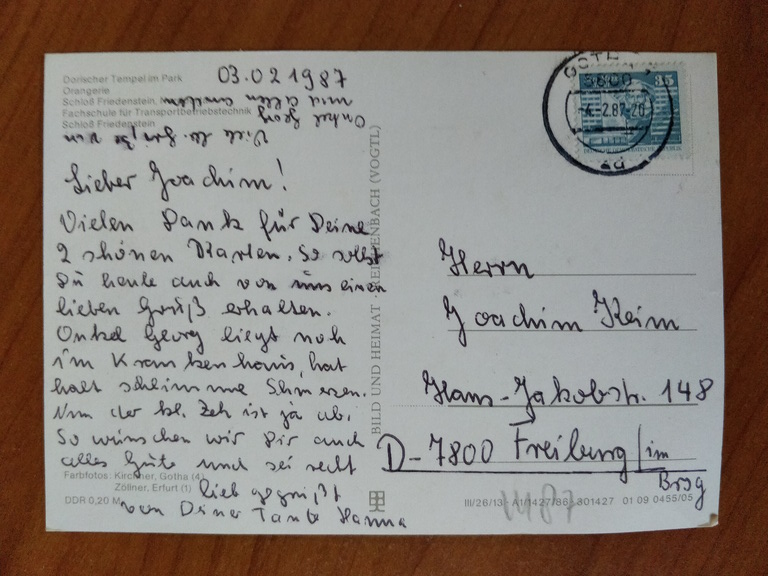 Dorischer Tempel im Park
Orangerie
Schloß Friedenstein,
Fachschule für Transportbetriebstechnik
Schloß Friedenstein
03.02 1987
Viele lb. Grüße von
Onkel Georg
und allen
Lieber Joachim!
Vielen Dank für Deine
2 schönen Karten. So sollst
Du heute auch von uns einen
lieben Gruß erhalten.
Onkel Georg liegt noch
im Krankenhaus, hat
halt schlimme Schmerzen.
Nun der kl. Zeh ist ja ab.
So wünschen wir Dir auch
alles Gute und sei recht
lieb gegrüßt
von Deiner Tante Hanna
Farbfotos: Kirchner, Gotha (4)
Zöllner, Erfurt (1)
DDR 0,20 M
BILD UND HEIMAT · REICHENBACH (VOGTL)
5800
-4.-2.87-20
35
Herrn
Joachim Keim
Hans-Jakobstr. 148
D-7800 Freiburg/im
Brsg
III/26/13 A1/1427/86 301427 01 09 0455/05